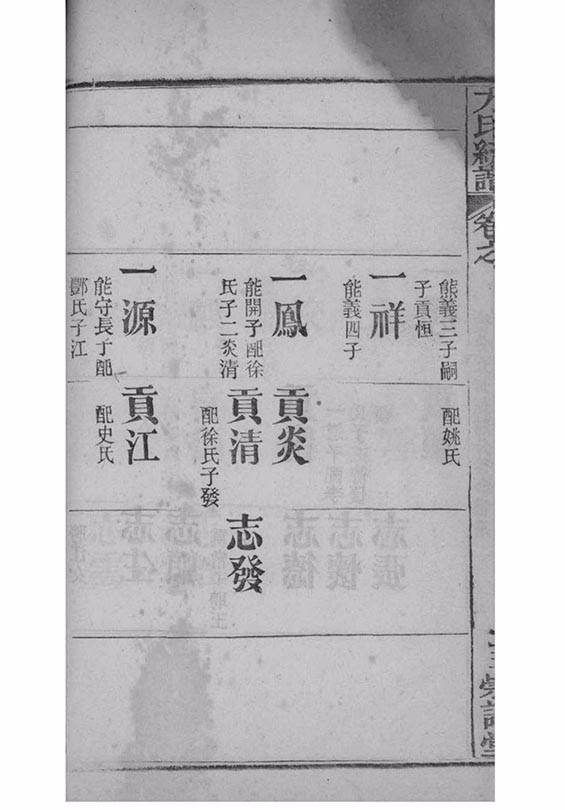 氏統譜 卷之
熊義三子嗣
子貢恒
配姚氏
一祥
能義四子
一鳳
能開子配徐
氏子二炎清
貢炎
貢清
配徐氏子發
志發
一源
能守長子配
酆氏子江
貢江
配史氏